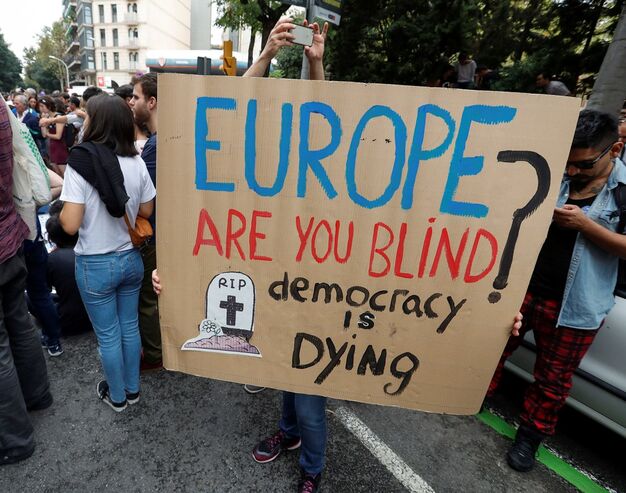 EUROPE
ARE YOU BLIND?
RIP
democracy
is
DYing